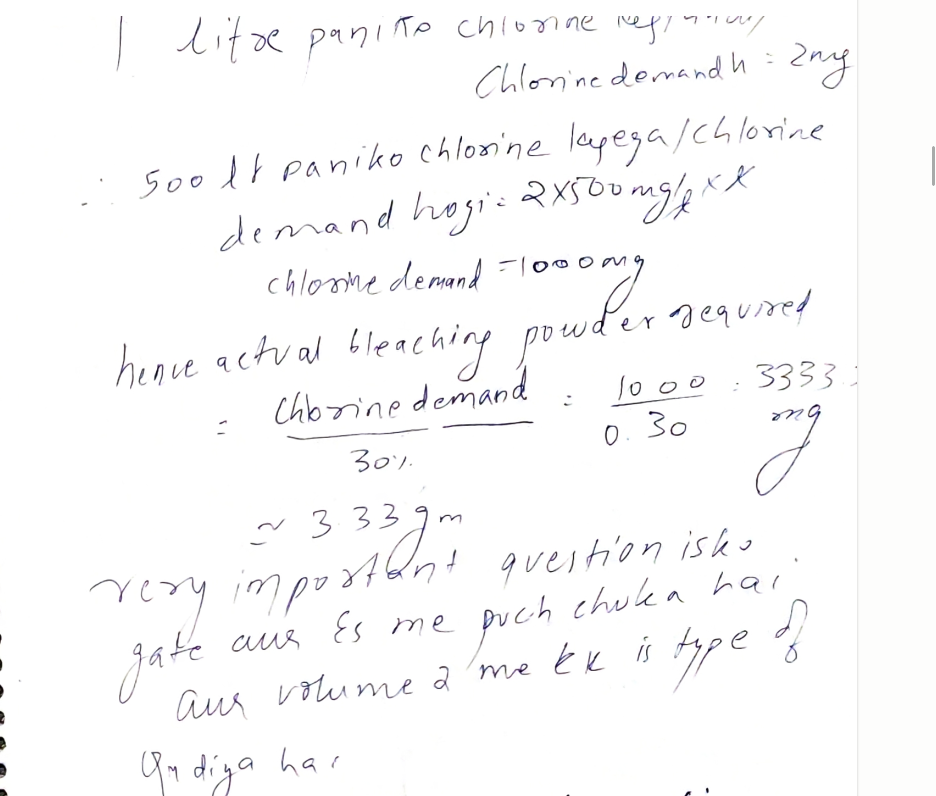 1 litre paniko chlorine
Chlorine demand h = 2mg
∴ 500 lt paniko chlorine lagega/chlorine
demand hogi = 2×500 mg/l × l
chlorine demand = 1000mg
hence actual bleaching powder required
= Chlorine demand / 30% = 1000 / 0.30 = 3333 mg
≃ 3.33gm
very important question isko
gate aur Es me puch chuka hai.
aur volume 2 me ek is type of
Qn diya hai